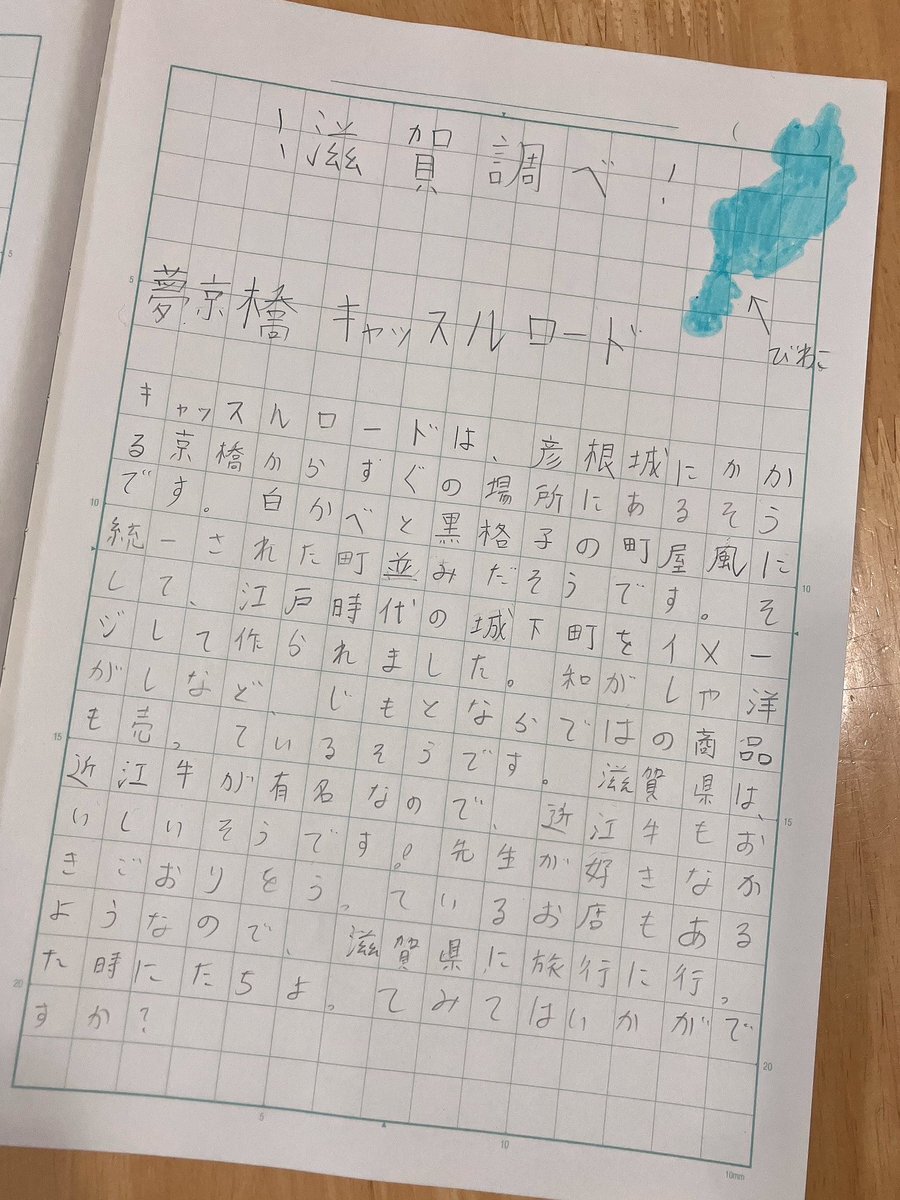 !滋賀調べ!
びわこ
夢京橋 キャッスルロード
キャッスルロードは、彦根城にかか
る京橋からすぐの場所にあるそう
です。白かべと黒格子の町屋風に
統一された町並みだそうです。そ
して、江戸時代の城下町をイメー
ジして作られました。和がしや洋
がしなど、じもとならではの商品
も売っているそうです。滋賀県は、
近江牛が有名なので、近江牛もお
いしいそうです。先生が好きなか
きごおりをうっているお店もある
ようなので、滋賀県に旅行に行っ
た時にたちよってみてはいかがで
すか?
5
10
15
20
5
10
10
15
20
5
10mm